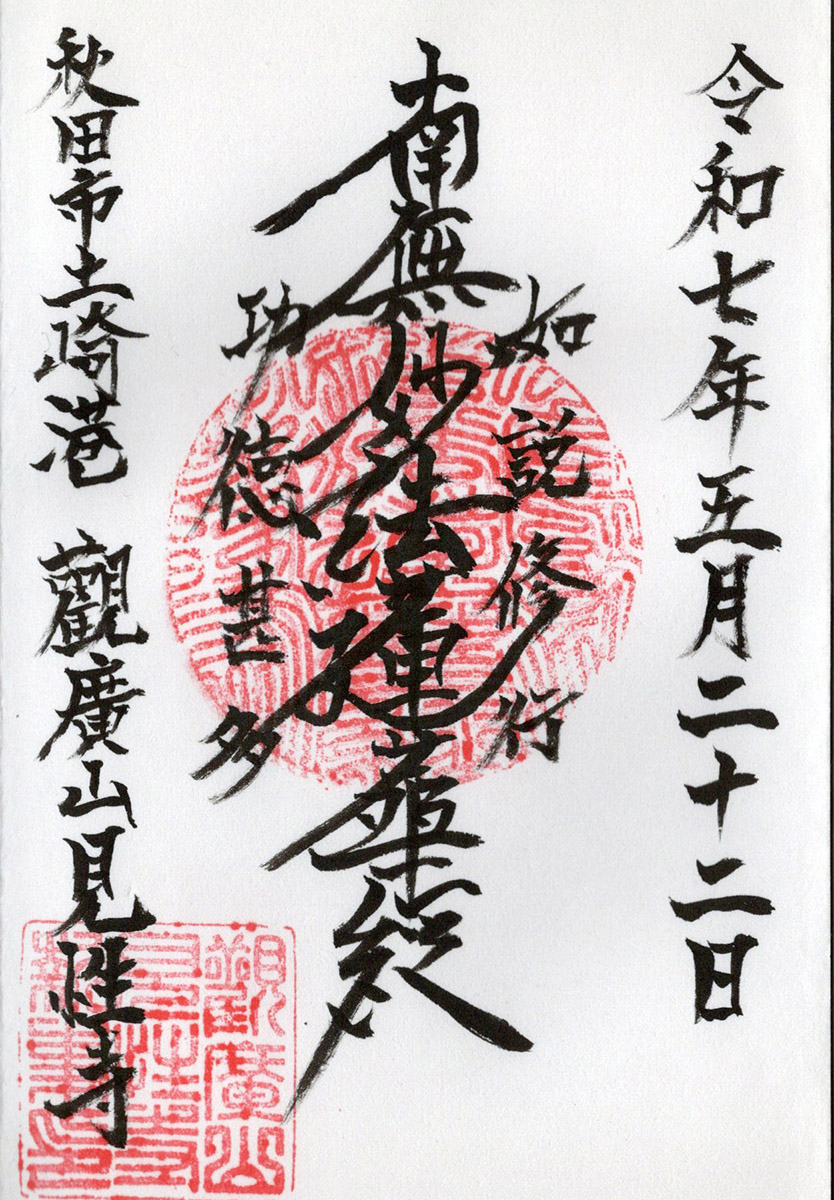 令和七年五月二十二日
如説修行
南無妙法蓮華経
功徳甚多
秋田市土崎港 觀廣山見性寺
觀廣山
見性寺